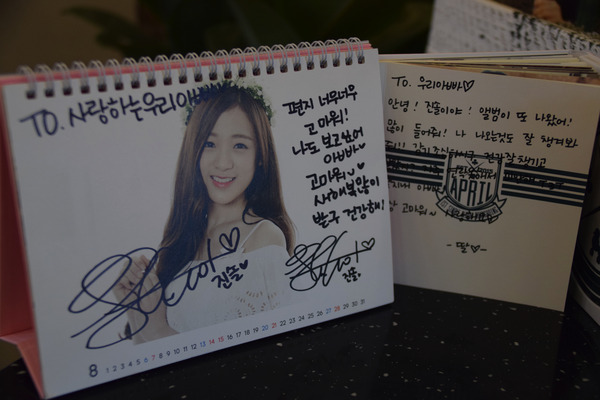 TO. 사랑하는 우리아빠♡
편지 너무너무
고마워!
나도 보고싶어
아빠♥
고마워~♥
새해복많이
받구 건강해!
진솔♥
진솔♥
8 1 2 3 4 5 6 7 8 9 10 11 12 13 14 15 16 17 18 19 20 21 22 23 24 25 26 27 28 29 30 31
To. 우리아빠♡
안녕! 진솔이야! 앨범이 또 나왔어!
많이 들어줘! 나 나오는것도 잘 챙겨봐
APRIL
고마워~
-딸♡-